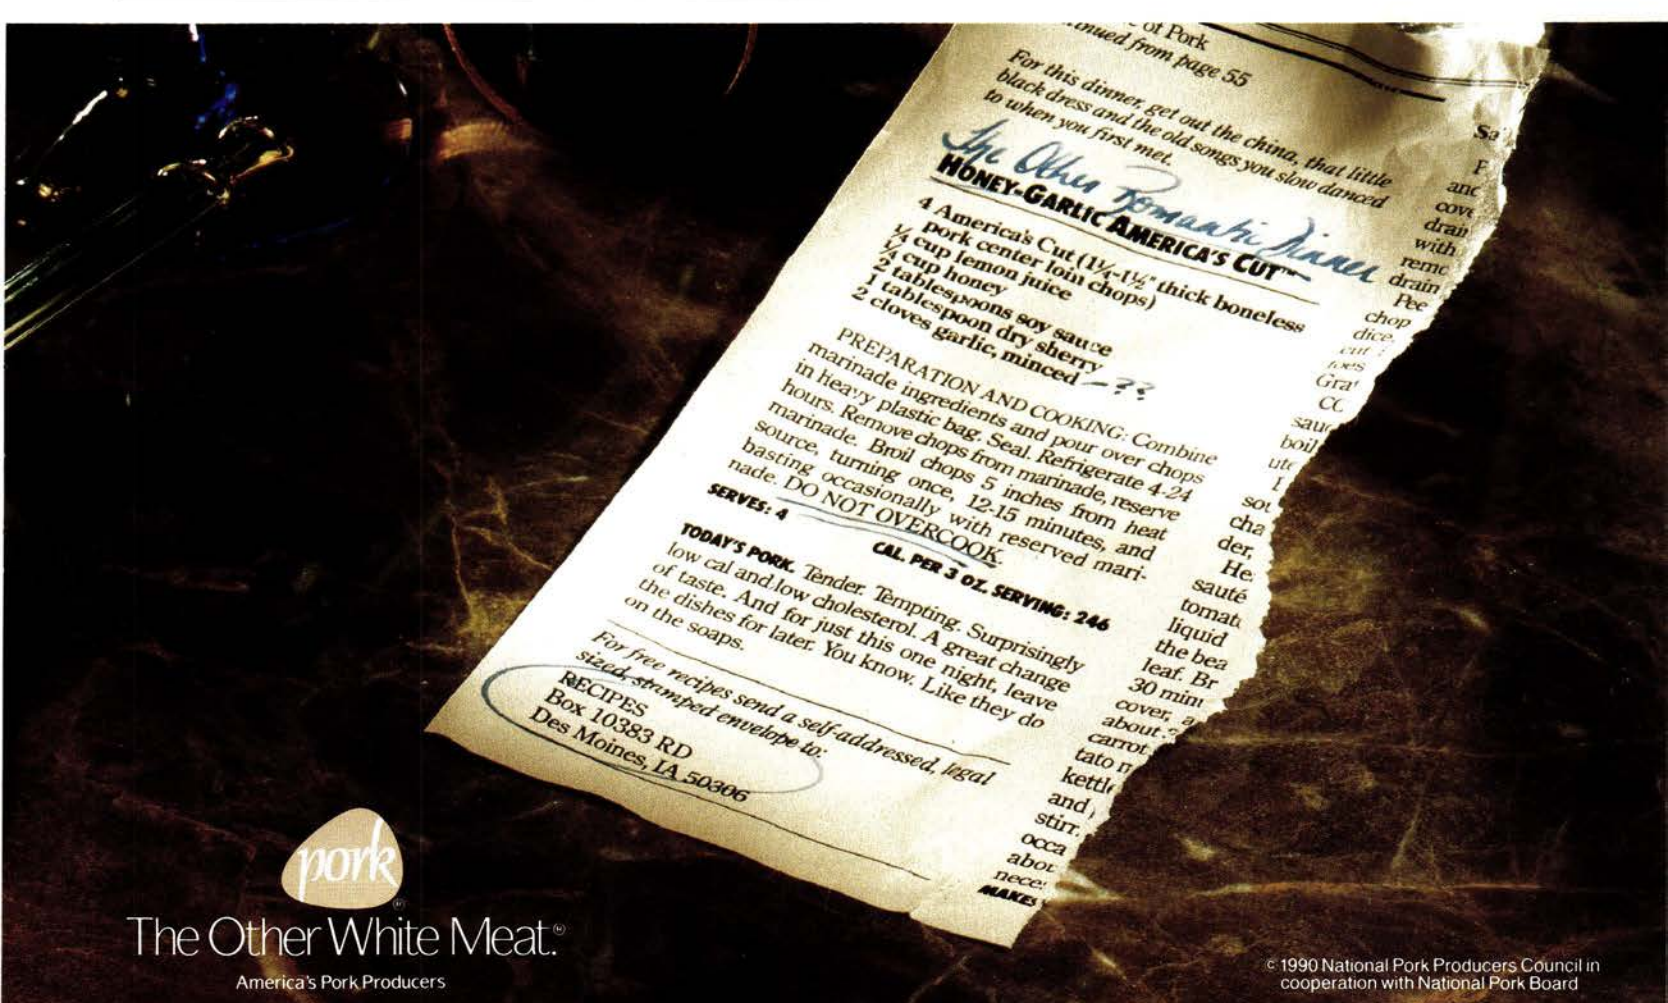 of Pork
tinued from page 55
For this dinner, get out the china, that little
black dress and the old songs you slow danced
to when you first met.
The Other Romantic Dinner
HONEY-GARLIC AMERICA'S CUT™
4 America's Cut (1¼-1½" thick boneless
pork center loin chops)
¼ cup lemon juice
¼ cup honey
2 tablespoons soy sauce
1 tablespoon dry sherry
2 cloves garlic, minced - ??
PREPARATION AND COOKING: Combine
marinade ingredients and pour over chops
in heavy plastic bag. Seal. Refrigerate 4-24
hours. Remove chops from marinade, reserve
marinade. Broil chops 5 inches from heat
source, turning once, 12-15 minutes, and
basting occasionally with reserved mari-
nade. DO NOT OVERCOOK.
SERVES: 4 CAL. PER 3 OZ. SERVING: 246
TODAY'S PORK. Tender. Tempting. Surprisingly
low cal and low cholesterol. A great change
of taste. And for just this one night, leave
the dishes for later. You know. Like they do
on the soaps.
For free recipes send a self-addressed, legal
sized, stamped envelope to:
RECIPES
Box 10383 RD
Des Moines, IA 50306
Sa
P
and
cove
drain
with
remo
drain
Pee
chop
dice
cut
toes
Grat
CC
sauc
boil
ute
sou
cha
der,
He
sauté
tomat
liquid
the bea
leaf. Br
30 minu
cover, a
about
carrot
tato n
kettle
and
stir.
occa
abou
neces
MAKES
pork
The Other White Meat.®
America's Pork Producers
© 1990 National Pork Producers Council in
cooperation with National Pork Board